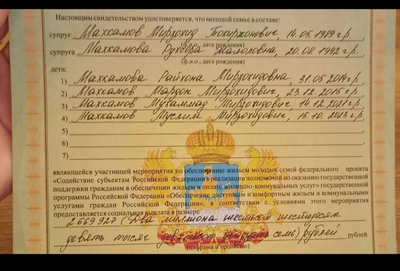 Настоящим свидетельством удостоверяется, что молодой семье в составе:
супруг Махкамов Мирзохид Тохиржонович, 14.06.1989 г.р.
(ф.и.о., дата рождения)
супруга Махкамова Рухсора Жалоловна, 20.08.1992 г.р.
(ф.и.о., дата рождения)
дети:
1) Махкамова Райхона Мирзохидовна, 31.05.2014 г.р.
2) Махкамов Мардон Мирзохидович, 23.12.2016 г.р.
3) Махкамов Мухаммад Мирзохидович, 14.12.2021 г.р.
4) Махкамов Муслим Мирзохидович, 16.10.2023 г.р.
5)
6)
7)
являющейся участницей мероприятия по обеспечению жильем молодых семей федерального проекта
«Содействие субъектам Российской Федерации в реализации полномочий по оказанию государственной
поддержки гражданам в обеспечении жильем и оплате жилищно-коммунальных услуг» государственной
программы Российской Федерации «Обеспечение доступным и комфортным жильем и коммунальными
услугами граждан Российской Федерации», в соответствии с условиями этого мероприятия
предоставляется социальная выплата в размере
2 669 927 (Два миллиона шестьсот шестьдесят
девять тысяч девятьсот двадцать семь) рублей рублей
(цифрами и прописью)